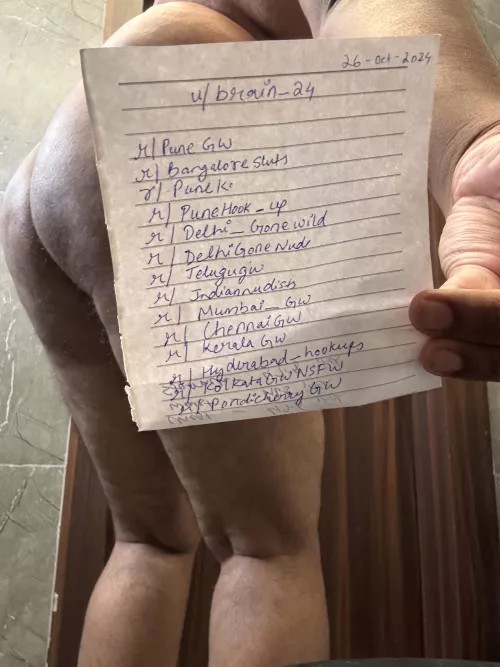 26-Oct-2024
u/brain_24
r/PuneGW
r/Bangaloresluts
r/
r/PuneHook_up
r/Delhi_Gonewild
r/DelhiGoneNude
r/Telugugw
r/Indiannudish
r/Mumbai_GW
r/ChennaiGW
r/KeralaGW
r/Hyderabad_hookups
r/KolkataGWNSFW
r/PondicherryGW